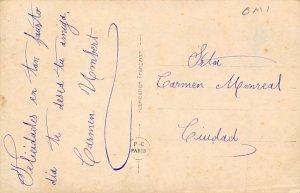 Felicidades en tan fausto
dia te desea tu amiga.
Carmen Umbert
P-C
PARIS
OMI
Srta
Carmen Monreal
Ciudad